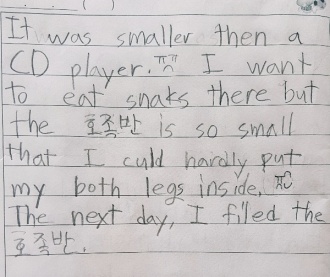 It was smaller then a
CD player. ㅠㅠ I want
to eat snaks there but
the 호족반 is so small
that I culd hardly put
my both legs inside.
The next day, I filled the
호족반.